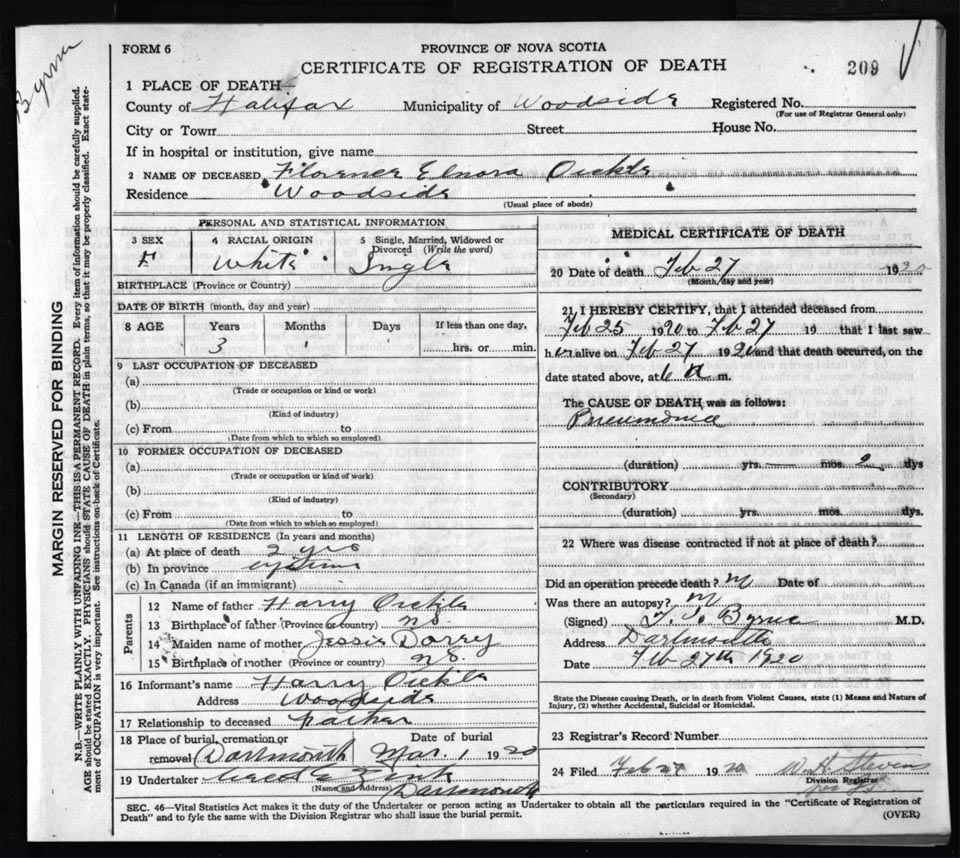 Byrne
FORM 6
PROVINCE OF NOVA SCOTIA
CERTIFICATE OF REGISTRATION OF DEATH
209
1 PLACE OF DEATH
County of Halifax Municipality of Woodside Registered No.
(For use of Registrar General only)
City or Town Street House No.
If in hospital or institution, give name
2 NAME OF DECEASED Florence Elnora Oickle
Residence Woodside
(Usual place of abode)
PERSONAL AND STATISTICAL INFORMATION
3 SEX 4 RACIAL ORIGIN 5 Single, Married, Widowed or Divorced (Write the word)
F White Single
BIRTHPLACE (Province or Country)
DATE OF BIRTH (month, day and year)
8 AGE Years Months Days If less than one day,
3 hrs. or min.
9 LAST OCCUPATION OF DECEASED
(a)
(Trade or occupation or kind of work)
(b)
(Kind of industry)
(c) From to
(Date from which to which so employed)
10 FORMER OCCUPATION OF DECEASED
(a)
(Trade or occupation or kind of work)
(b)
(Kind of industry)
(c) From to
(Date from which to which so employed)
11 LENGTH OF RESIDENCE (In years and months)
(a) At place of death 2 yrs
(b) In province
(c) In Canada (if an immigrant)
Parents
12 Name of father Harry Oickle
13 Birthplace of father (Province or country) NS
14 Maiden name of mother Jessie Dorrey
15 Birthplace of mother (Province or country) NS.
16 Informant's name Harry Oickle
Address Woodside
17 Relationship to deceased Father
18 Place of burial, cremation or removal Dartmouth Date of burial Mar. 1 1920
19 Undertaker
(Name and Address) Dartmouth
MEDICAL CERTIFICATE OF DEATH
20 Date of death Feb 27 1920
(Month, day and year)
21 I HEREBY CERTIFY, that I attended deceased from
Feb 25 1920 to Feb 27 19 that I last saw
her alive on Feb 27 1920 and that death occurred, on the
date stated above, at 6 a m.
The CAUSE OF DEATH was as follows:
Pneumonia
(duration) yrs. mos. 2 dys
CONTRIBUTORY
(Secondary)
(duration) yrs. mos. dys.
22 Where was disease contracted if not at place of death?
Did an operation precede death? Date of
Was there an autopsy?
(Signed) Byrne M.D.
Address Dartmouth
Date Feb 27th 1920
State the Disease causing Death, or in death from Violent Causes, state (1) Means and Nature of
Injury, (2) whether Accidental, Suicidal or Homicidal.
23 Registrar's Record Number
24 Filed Feb 1920 W. H. Stevens
Division Registrar
SEC. 46—Vital Statistics Act makes it the duty of the Undertaker or person acting as Undertaker to obtain all the particulars required in the "Certificate of Registration of
Death" and to fyle the same with the Division Registrar who shall issue the burial permit.
(OVER)
MARGIN RESERVED FOR BINDING
N.B.—WRITE PLAINLY WITH UNFADING INK—THIS IS A PERMANENT RECORD. Every item of information should be carefully supplied.
AGE should be stated EXACTLY. PHYSICIANS should STATE CAUSE OF DEATH in plain terms, so that it may be properly classified. Exact statement
of OCCUPATION is very important. See instructions on back of Certificate.